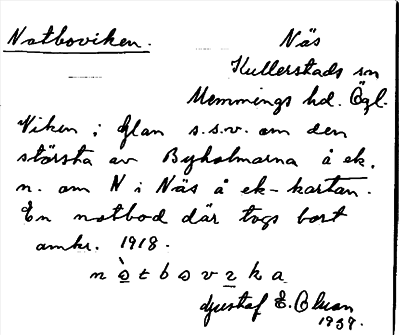 Notboviken. Näs
Kullerstads sn
Memmings hd. Ögl.
Viken i Glan s.s.v. om den
största av Byholmarna å ek.
n. om N i Näs å ek-kartan.
En notbod där togs bort
omkr. 1918.
n ò t b o v ɪ k a
Gustaf E. Olsson
1937.